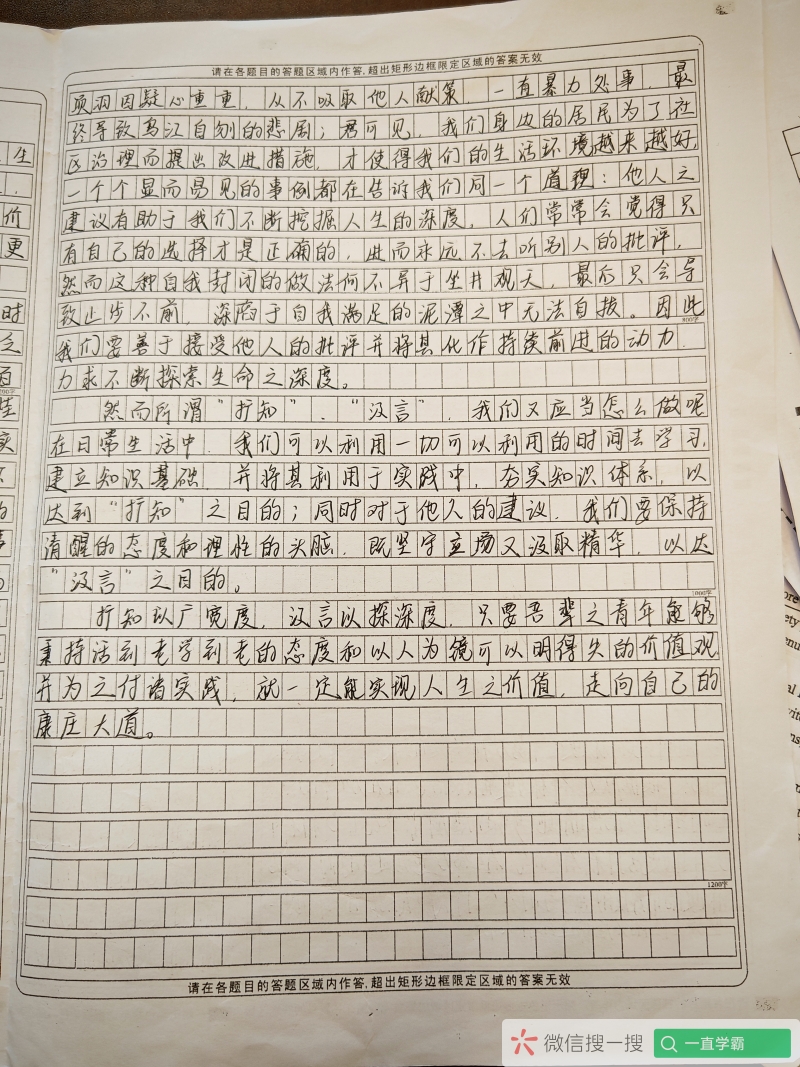 请在各题目的答题区域内作答,超出矩形边框限定区域的答案无效
项羽因疑心重重，从不吸取他人献策，一直暴力处事，最
终导致乌江自刎的悲剧；君可见，我们身边的居民为了社
区治理而提出改进措施，才使得我们的生活环境越来越好，
一个个显而易见的事例都在告诉我们同一个道理：他人之
建议有助于我们不断挖掘人生的深度，人们常常会觉得只
有自己的选择才是正确的，进而永远不去听别人的批评，
然而这种自我封闭的做法何不异于坐井观天，最后只会导
致止步不前，深陷于自我满足的泥潭之中无法自拔。因此
800字
我们要善于接受他人的批评并将其化作持续前进的动力，
力求不断探索生命之深度。
然而所谓“扩知”、“汲言”，我们又应当怎么做呢
在日常生活中，我们可以利用一切可以利用的时间去学习，
建立知识基础，并将其利用于实践中，夯实知识体系，以
达到“扩知”之目的；同时对于他人的建议，我们要保持
清醒的态度和理性的头脑，既坚守立场又汲取精华，以达
“汲言”之目的。
1000字
扩知以广宽度，汲言以探深度，只要吾辈之青年能够
秉持活到老学到老的态度和以人为镜可以明得失的价值观
并为之付诸实践，就一定能实现人生之价值，走向自己的
康庄大道。
1200字
请在各题目的答题区域内作答,超出矩形边框限定区域的答案无效
生
价
更
时
实
微信搜一搜
一直学霸